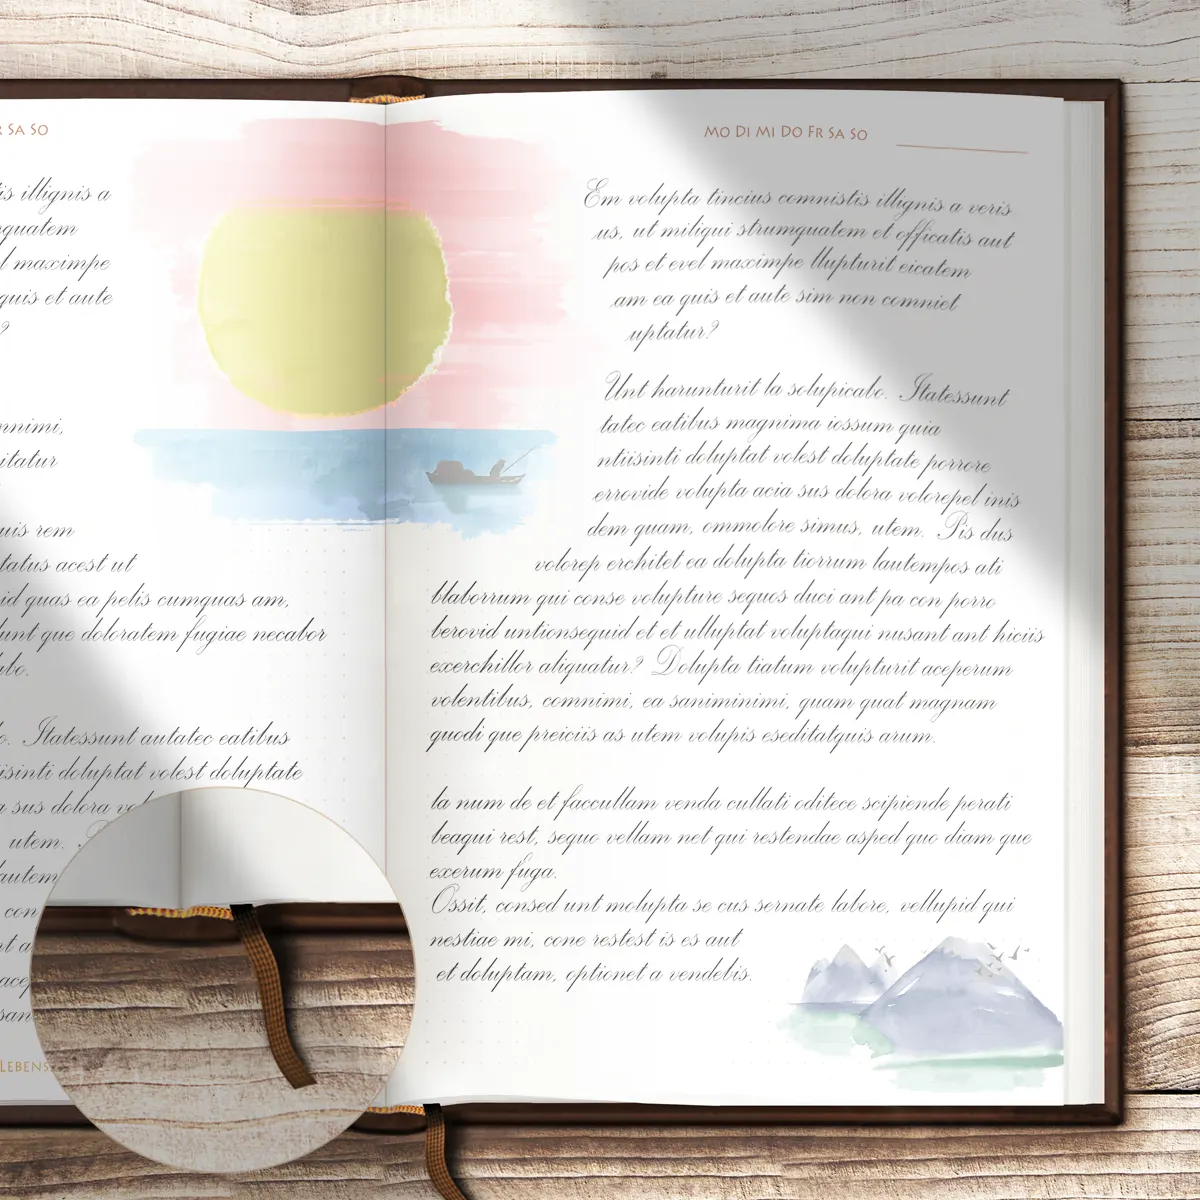 R SA SO
is illignis a
quatem
l maximpe
quis et aute
?
nnimi,
itatur
uis rem
tatus acest ut
id quas ea pelis cumquas am,
unt que doloratem fugiae necabor
abo.
o. Itatessunt autatec eatibus
isinti doluptat volest doluptate
a sus dolora vol
utem.
autem
con
nt a
acep
san
LEBENS
MO DI MI DO FR SA SO
Em volupta tincius comnistis illignis a veris
us, ut miliqui strumquatem et officatis aut
pos et evel maximpe llupturit eicatem
am ea quis et aute sim non comniet
uptatur?
Unt harunturit la solupicabo. Itatessunt
tatec eatibus magnima iossum quia
ntiisinti doluptat volest doluptate porrore
errovide volupta acia sus dolora volorepel inis
dem quam, ommolore simus, utem. Pis dus
volorep erchitet ea dolupta tiorrum lautempos ati
blaborrum qui conse volupture sequos duci ant pa con porro
berovid untionsequid et et ulluptat voluptaqui nusant ant hiciis
exerchillor aliquatur? Dolupta tiatum volupturit aceperum
volentibus, comnimi, ea saniminimi, quam quat magnam
quodi que preiciis as utem volupis eseditatquis arum.
la num de et faccullam venda cullati oditece scipiende perati
beaqui rest, sequo vellam net qui restendae asped quo diam que
exerum fuga.
Ossit, consed unt molupta se cus sernate labore, vellupid qui
nestiae mi, cone restest is es aut
et doluptam, optionet a vendebis.